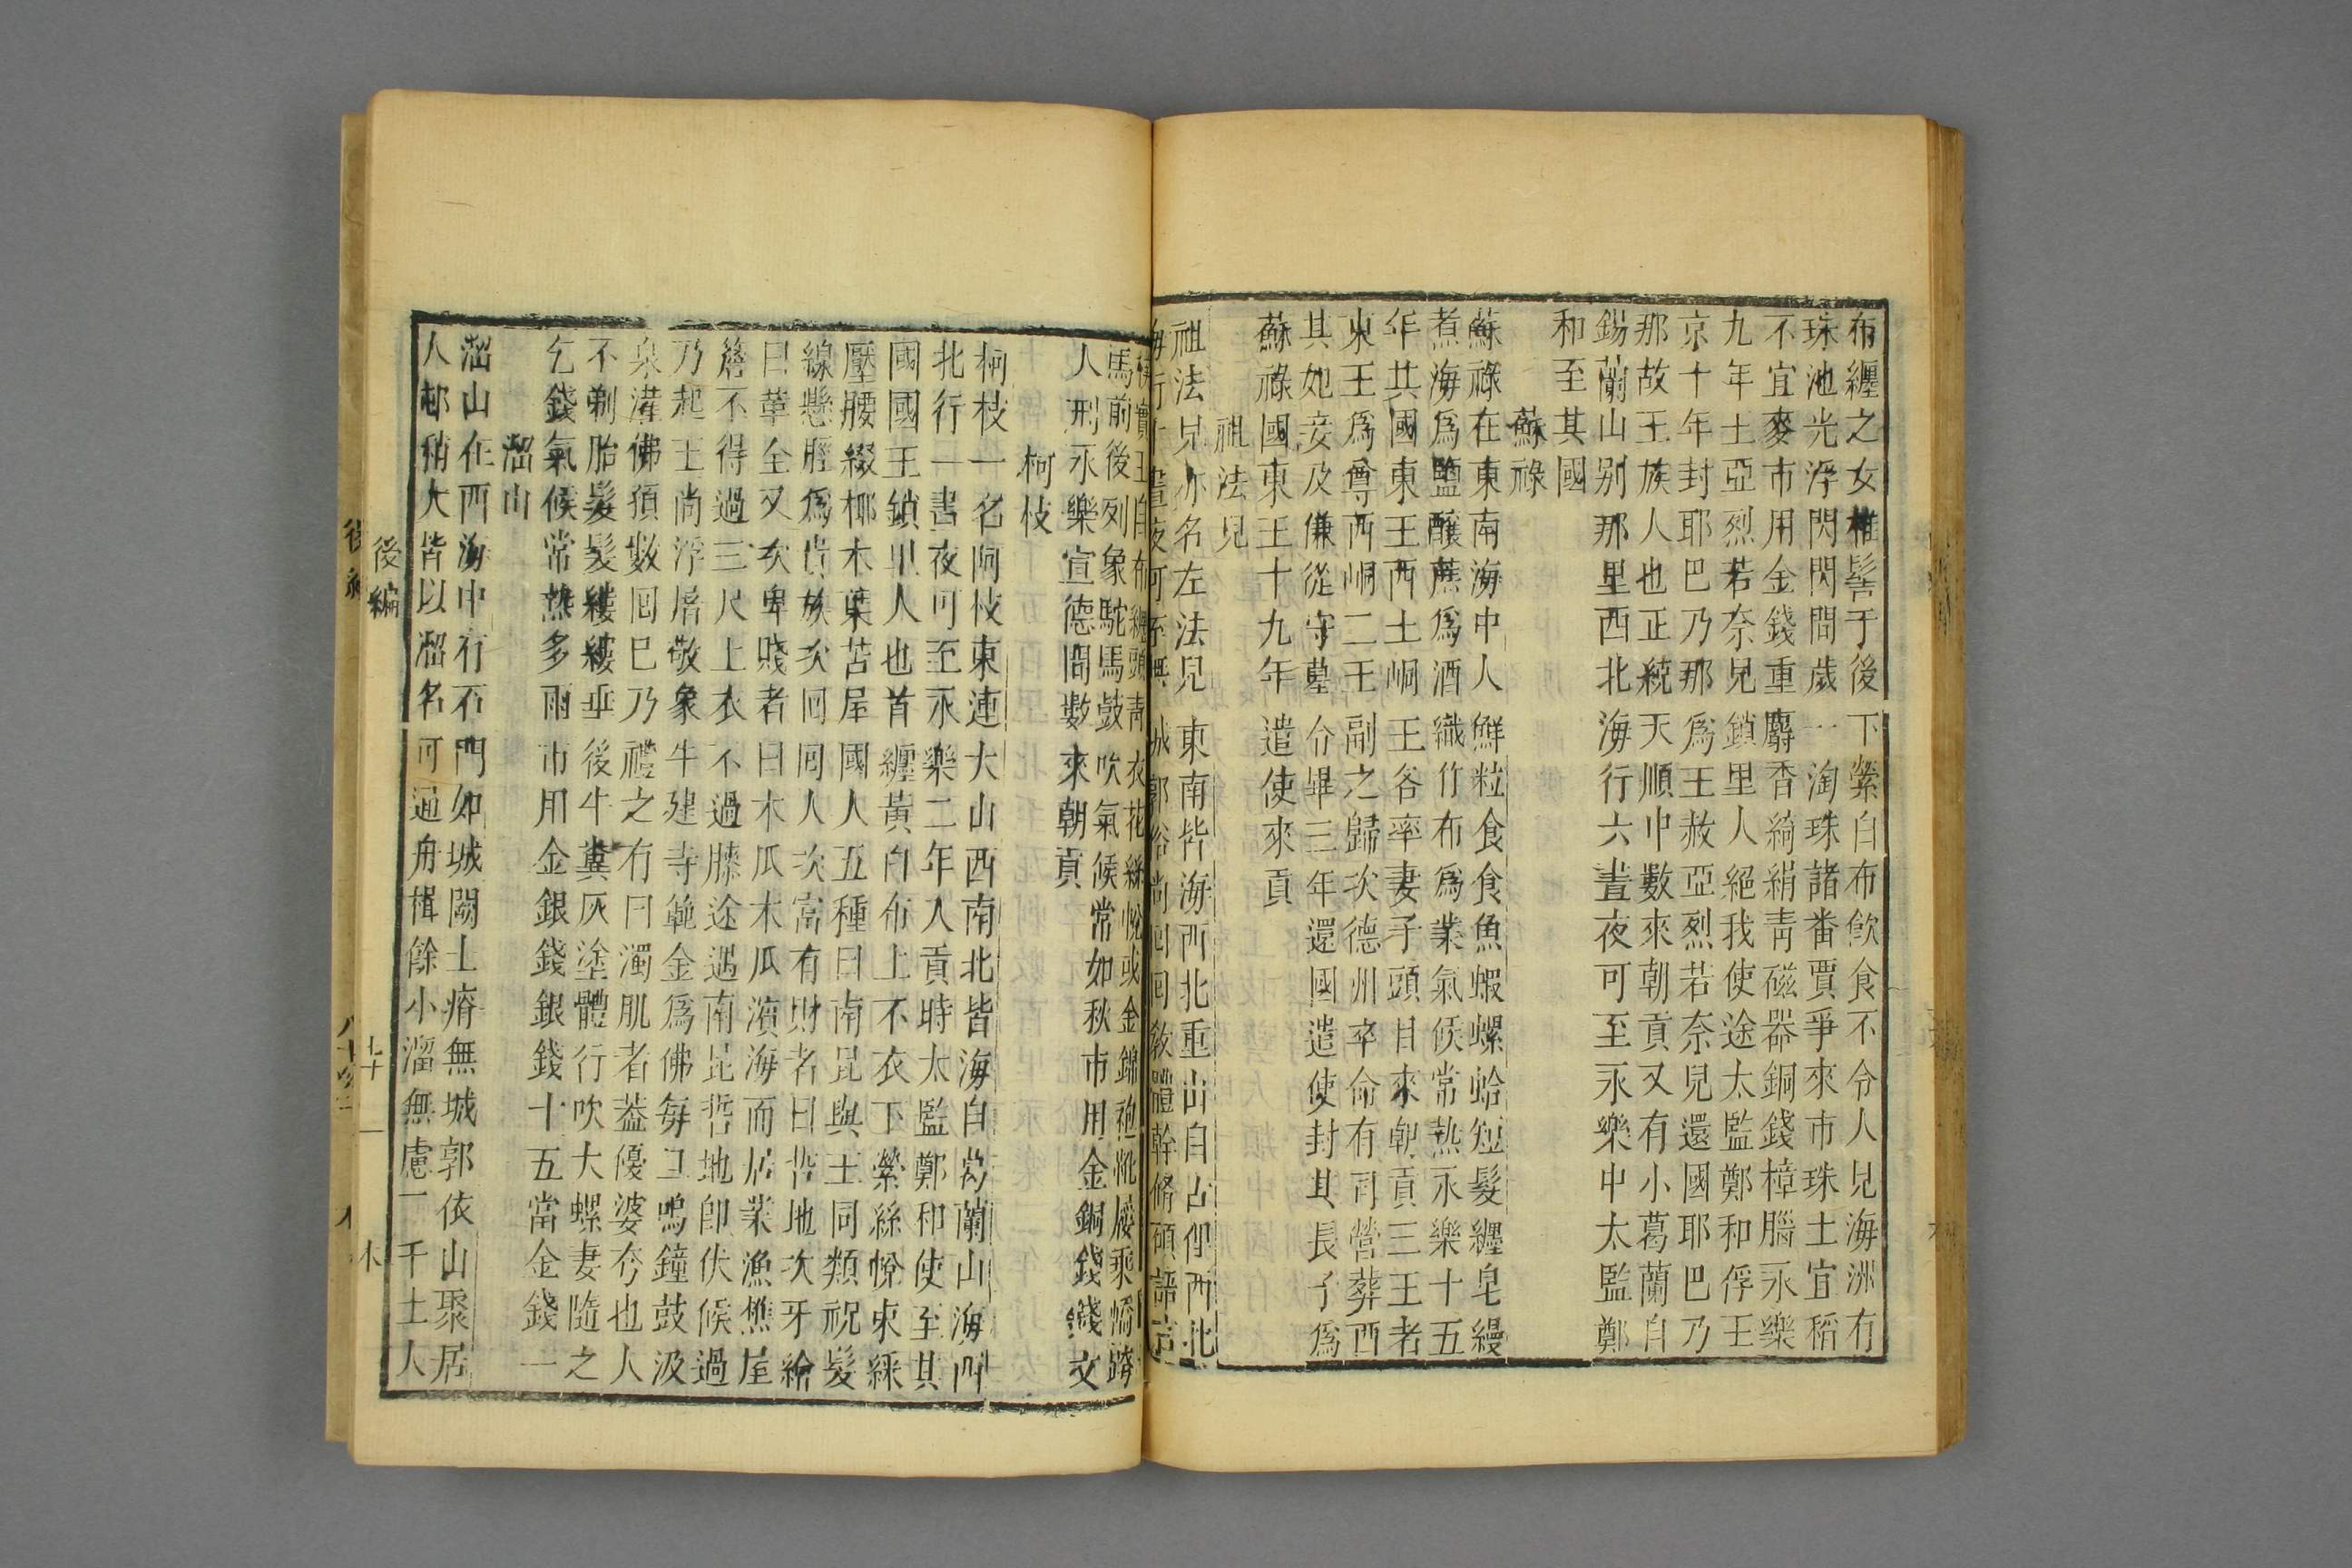 布纏之女椎髻于後下縈白布飲食不令人見海洲有
珠池光浮閃閃間歲一淘珠諸番賈爭來市珠土宜稻
不宜麥市用金錢重麝香綺絹青磁器銅錢樟腦永樂
九年土亞烈若奈兒鎖里人絕我使途太監鄭和俘王
京十年封耶巴乃那為王赦亞烈若奈兒還國耶巴乃
那故王族人也正統天順中數來朝貢又有小葛蘭自
錫蘭山别那里西北海行六晝夜可至永樂中太監鄭
和至其國
蘇祿
蘇祿在東南海中人鮮粒食食魚蝦螺蛤短髮纏皂縵
煮海為鹽釀蔗為酒織竹布為業氣候常熱永樂十五
年其國東王西王峒王各率妻子頭目來朝貢三王者
東王為尊西峒二王副之歸次德州卒命有司營葬西
其妃妾及傔從守墓令畢三年還國遣使封其長子為
蘇祿國東王十九年遣使來貢
祖法兒
祖法兒亦名左法兒東南皆海西北重山自古俚西北
海行十晝夜可至無城郭俗尚回回敎體幹脩碩語言
王白布纏頭靑衣花絲帨或金錦袍靴屨乘轎跨
馬前後列象駝馬鼓吹氣候常如秋市用金銅錢錢文
人刑永樂宣德間數來朝貢
柯枝
柯枝一名阿枝東連大山西南北皆海自葛蘭山海西
北行一晝夜可至永樂二年入貢時太監鄭和使至其
國國王鎖里人也首纏黃白布上不衣下縈絲帨束綵
壓腰綴椰木葉苫屋國人五種曰南毘與王同類祝髮
線懸脛為貴族次回回人次富有財者曰哲地次牙繪
曰革全又次卑賤者曰木瓜木瓜濱海而居業漁樵屋
簷不得過三尺上衣不過膝途遇南毘哲地即伏候過
乃起王尚浮屠敬象牛建寺範金為佛每旦鳴鐘鼓汲
泉灌佛頂數回巳乃禮之有曰濁肌者葢優婆夷也人
不剃胎髮髮縷縷垂後牛糞灰塗體行吹大螺妻隨之
乞錢氣候常熱多雨市用金銀錢銀錢十五當金錢一
溜山
溜山在西海中有石門如城闕土瘠無城郭依山聚居
人邨稍大皆以溜名可通舟楫餘小溜無慮一千土人
後編
木